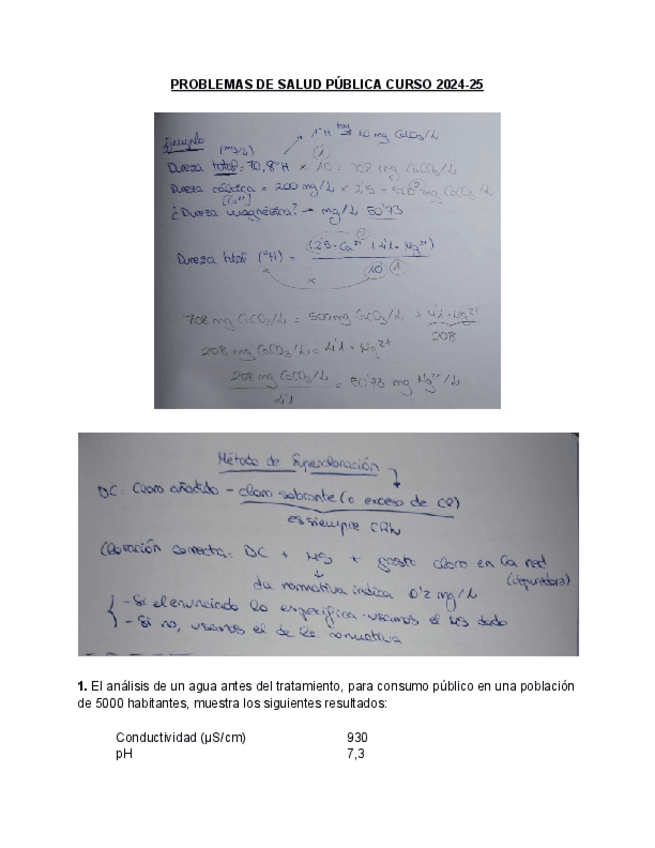 PROBLEMAS DE SALUD PÚBLICA CURSO 2024-25
Ejemplo (mg/L) 1°H → 10 mg CaCO3/L
Dureza total = 70,8°H × 10 = 708 mg CaCO3/L
Dureza cálcica = 200 mg/L × 2'5 = 500 mg CaCO3/L
[Ca2+]
¿Dureza magnésica? → mg/L 50'73
Dureza total (°H) = (2'5·Ca2+ + 4'1·Mg2+)
10
708 mg CaCO3/L = 500 mg CaCO3/L + 4'1·Mg2+
208
208 mg CaCO3/L = 4'1·Mg2+
208 mg CaCO3/L = 50'73 mg Mg2+/L
4'1
Método de Supercloración
DC: Cloro añadido - cloro sobrante (o exceso de Cl)
es siempre CRL
Cloración correcta: DC + MS + gasto cloro en la red
(depuradora)
la normativa indica 0'2 mg/L
- Si el enunciado lo especifica usamos el MS dado
- Si no, usamos el de la normativa
1. El análisis de un agua antes del tratamiento, para consumo público en una población
de 5000 habitantes, muestra los siguientes resultados:
Conductividad (µS/cm) 930
pH 7,3